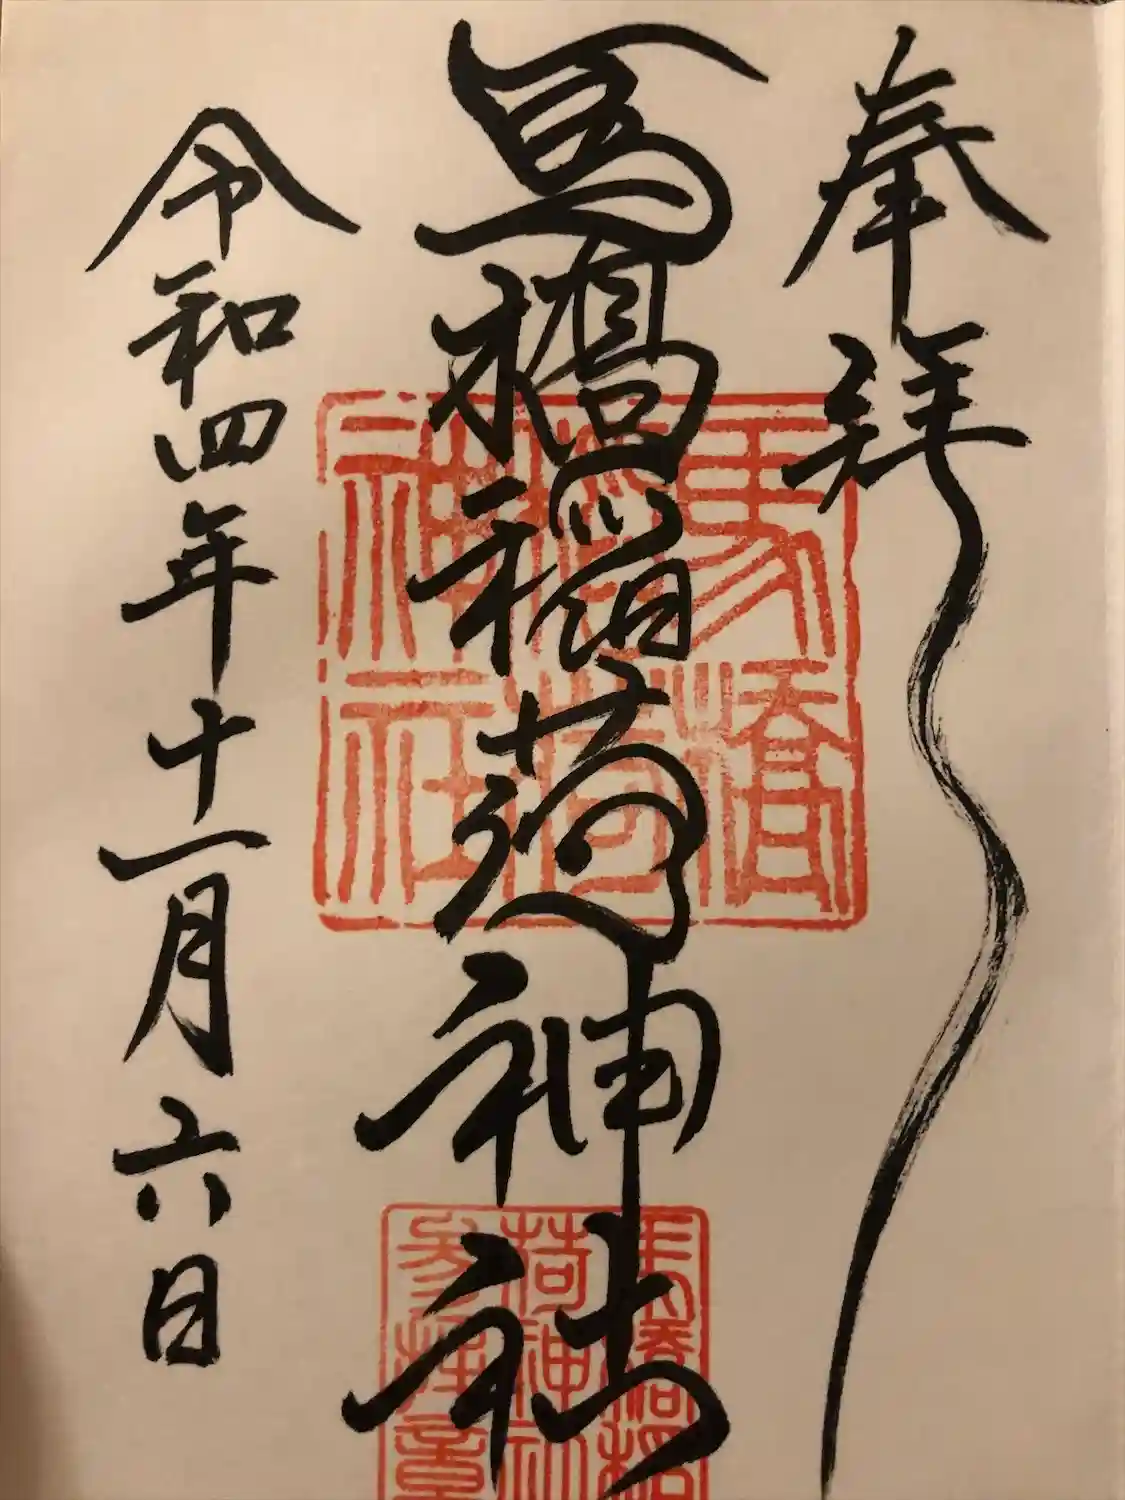 奉拜
馬橋稲荷神社
令和四年十一月六日
馬橋
稲荷
神社
馬橋稲
荷神社
参拝章